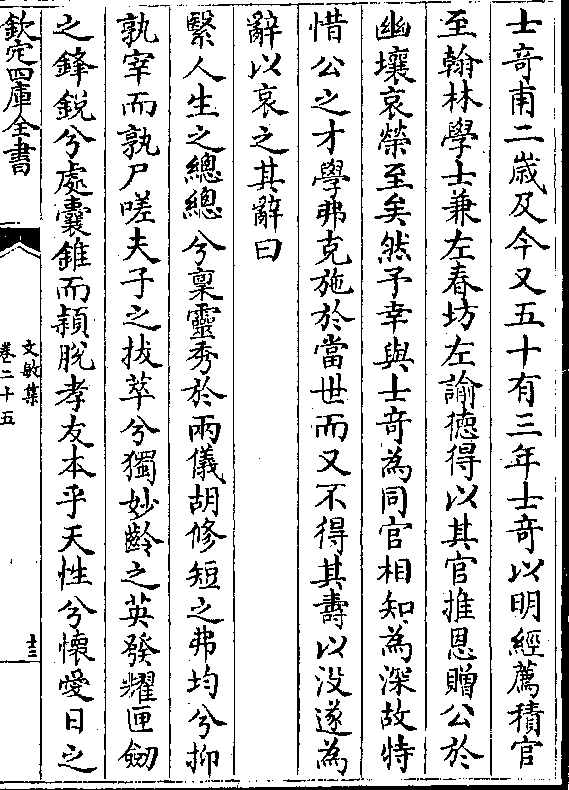 士竒甫二歳及今又五十有三年士竒以明經薦積官
至翰林學士兼左春坊左諭徳得以其官推恩贈公於
幽壤哀榮至矣然予幸與士竒為同官相知為深故特
惜公之才學弗克施於當世而又不得其壽以没遂為
辭以哀之其辭曰
緊人生之總總兮稟靈秀於兩儀胡修短之弗均兮抑
孰宰而孰尸嗟夫子之拔萃兮獨妙齡之英發耀匣劒
之鋒鋭兮處囊錐而頴脱孝友本乎天性兮懐愛日之
欽定四庫全書
文敏集
卷二十五
十三